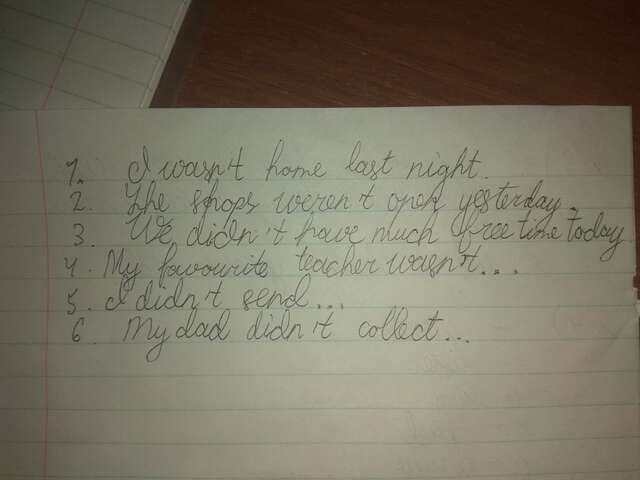 1. I wasn't home last night.
2. The shops weren't open yesterday.
3. We didn't have much free time today
4. My favourite teacher wasn't...
5. I didn't send...
6. My dad didn't collect...